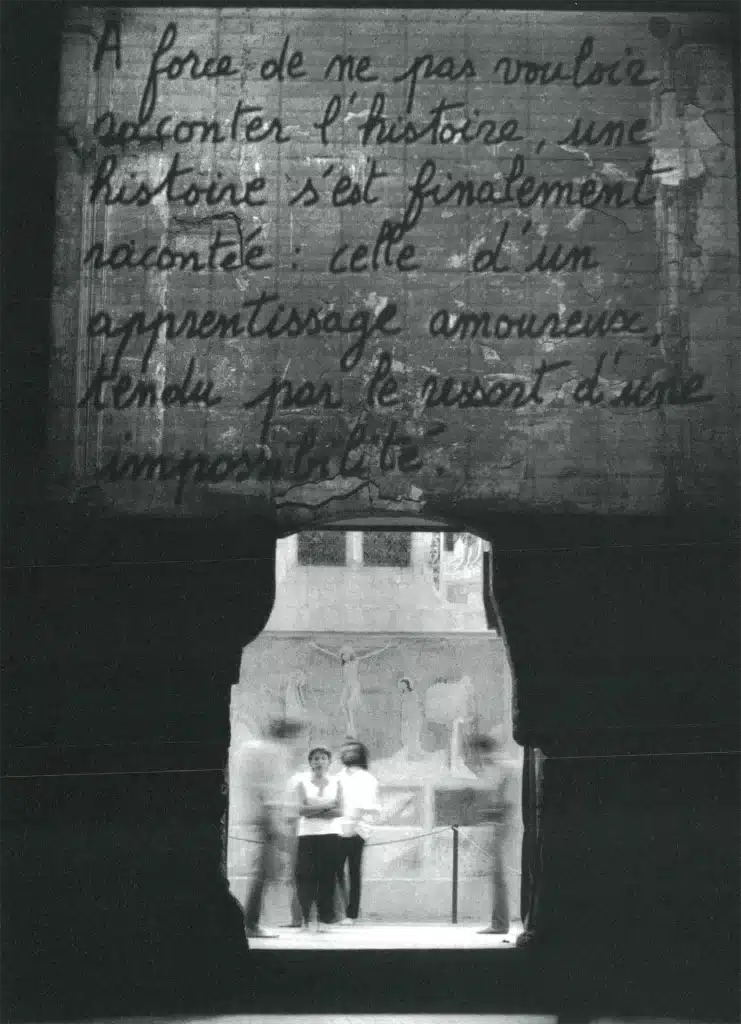 A force de ne pas vouloir
raconter l'histoire, une
histoire s'est finalement
racontée : celle d'un
apprentissage amoureux,
tendu par le ressort d'une
impossibilité.